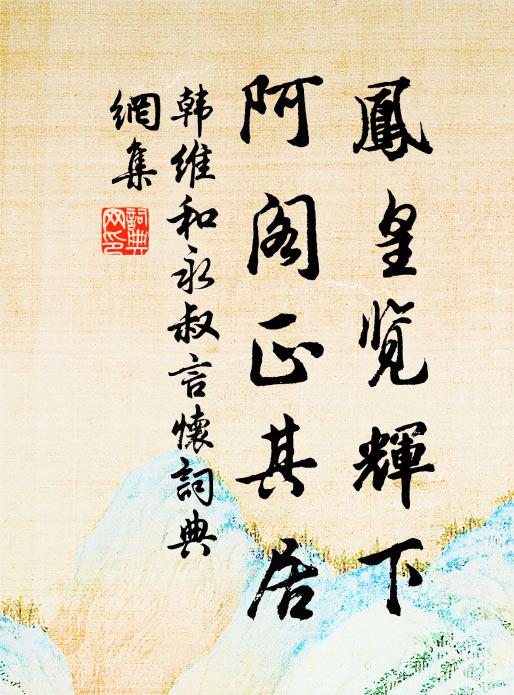 鳳皇览輝下
阿阁正其居
韩维和永叔言懷詞典
網集
詞典
网印